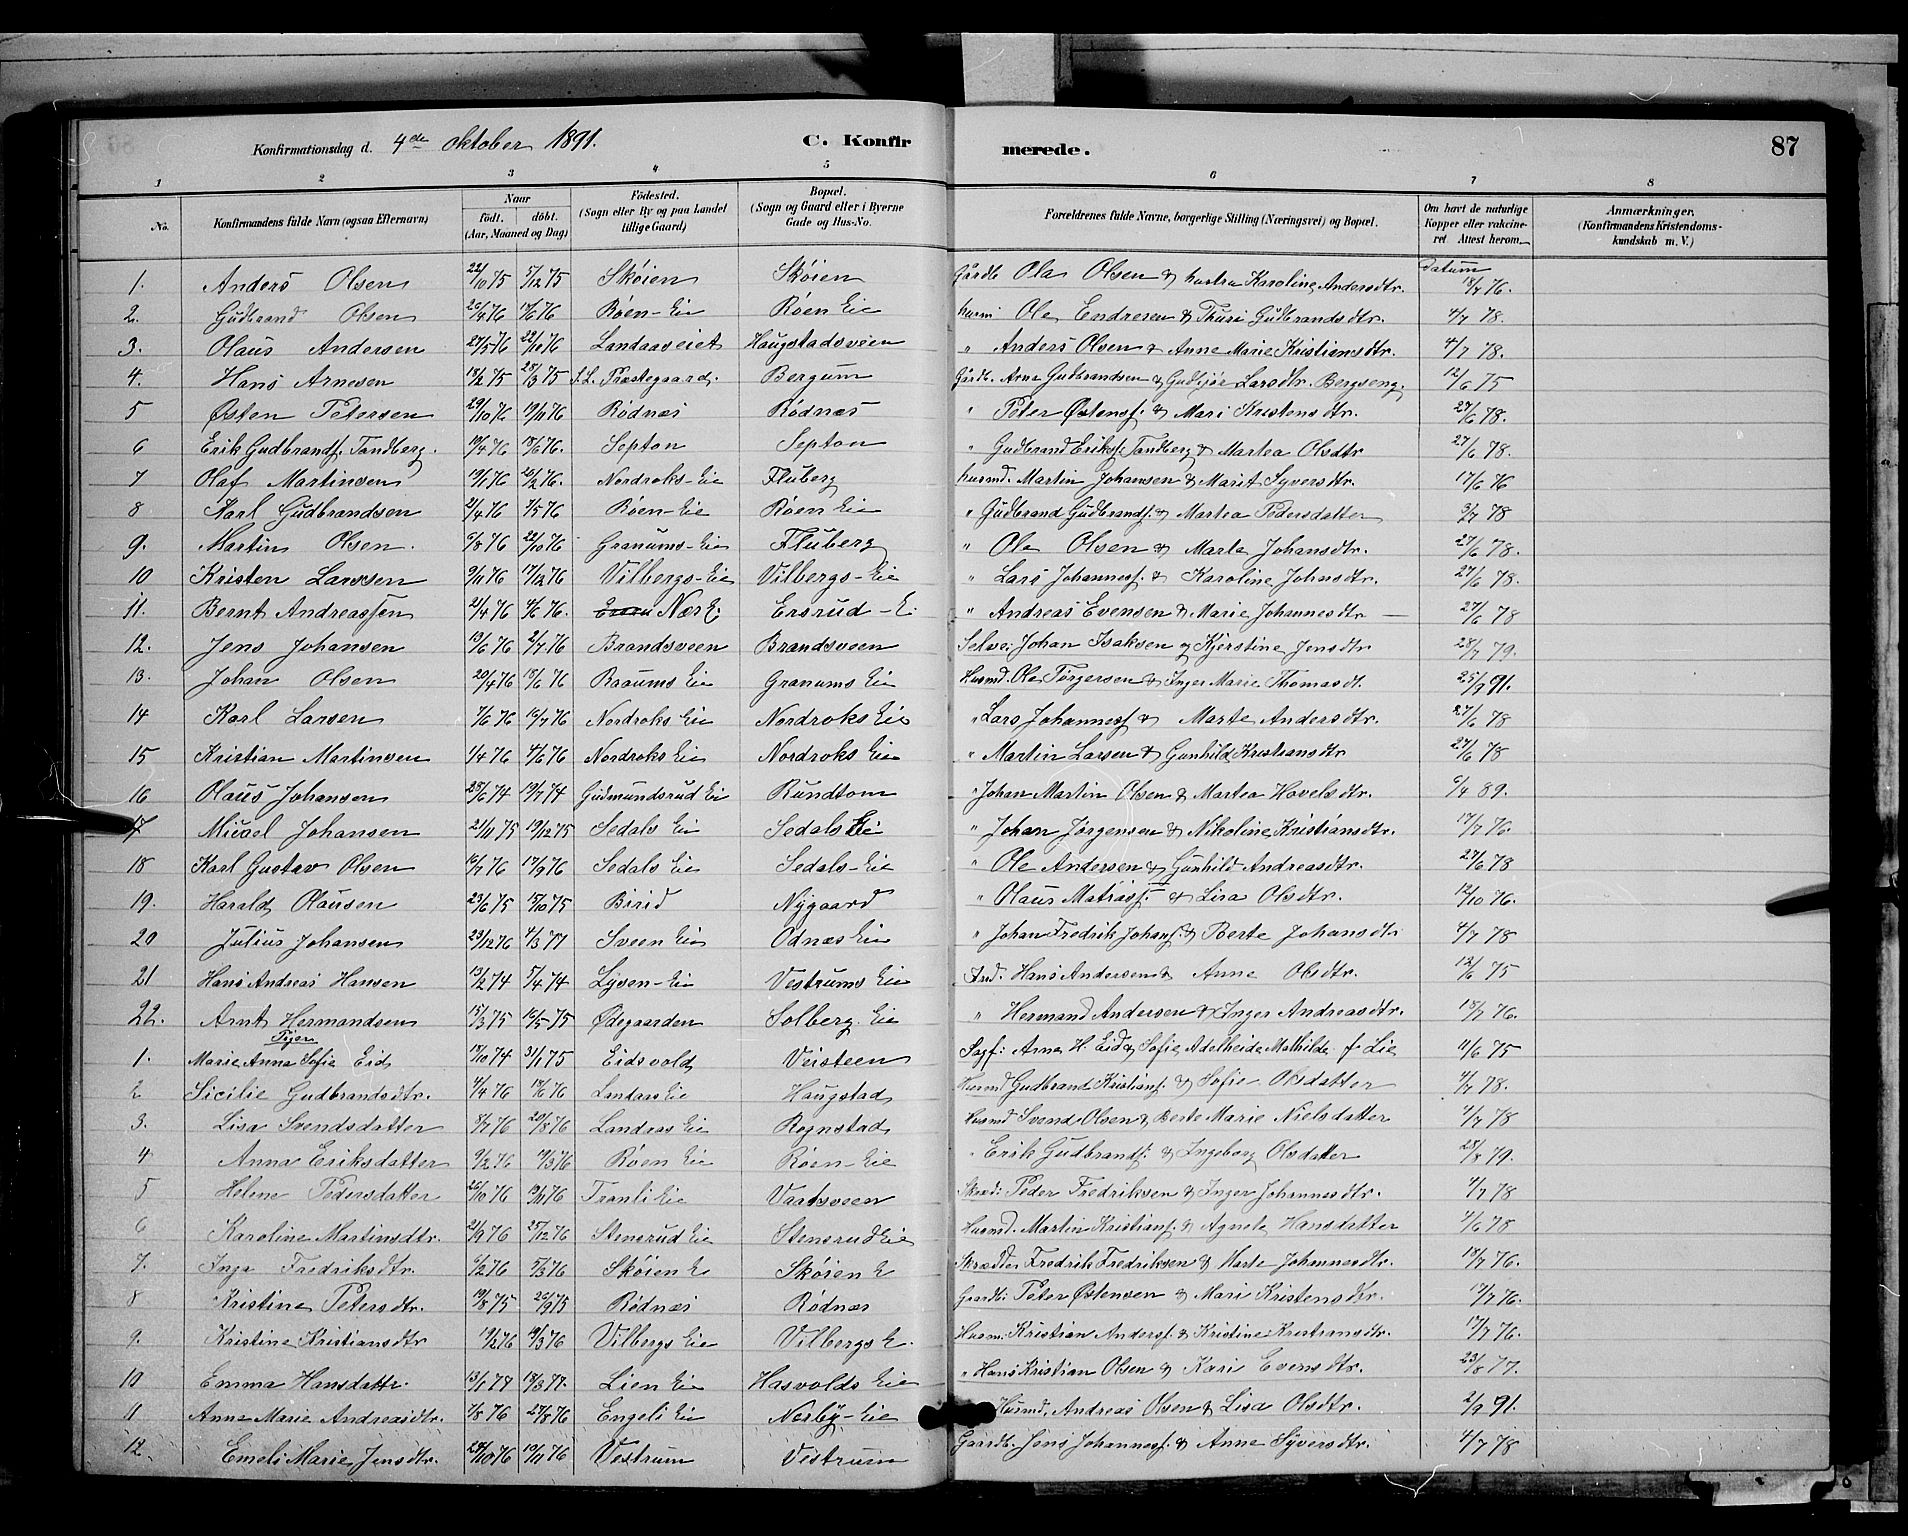 Konfirmationsdag d. 4de oktober 1891. C. Konfirmerede. 87
1 2 3 4 5 6 7 8
No. Konfirmandens fulde Navn (ogsaa Efternavn) Naar födt. döbt. (Aar, Maaned og Dag) Födested. (Sogn eller By og paa Landet tillige Gaard) Bopæl. (Sogn og Gaard eller i Byerne Gade og Hus-No. Forældrenes fulde Navne, borgerlige Stilling (Næringsvei) og Bopæl. Om havt de naturlige Kopper eller vakcineret Attest herom. Anmærkninger, (Konfirmandens Kristendomskundskab m. V.)
Datum
1. Anders Olsen 22/10 75 5/12 75 Skøien Skøien Gårdb Ola Olsen & hustru Karoline Andersdtr. 18/7 76.
2. Gudbrand Olsen 26/4 76 /6 76 Røen-Eie Røen Eie husm Ole Endresen & Thuri Gudbrandsdtr. 4/7 78.
3. Olaus Andersen 27/5 76 22/10 76 Landaaseiet Haugstadsveen " Anders Olsen & Anne Marie Kristiansdtr. 4/7 78.
4. Hans Arnesen 18/2 75 28/3 75 S.L. Præstegaard. Bergum Gårdb. Arne Gudbrandsen & Larsdtr. Bergseng. 12/6 75
5 Østen Petersen 29/10 76 19/11 76 Rødnæs Rødnæs " Peter Østensf. & Mari Kristensdtr. 27/6 78.
6 Erik Gudbrandsf. Tandberg. 19/4 76 18/6 76. Septon Septon " Gudbrand Eriksf. Tandberg & Martea Olsdtr 27/6 78.
7 Olaf Martinsen 19/1 76 20/2 76. Nordroks-Eie Fluberg husmd. Martin Johansen & Marit Syversdtr. 17/6 76
8 Karl Gudbrandsen 2/4 76 7/5 76 Røen-Eie Røen Eie " Gudbrand Gudbrandsf. & Martea Pedersdatter 3/7 78
9. Martin Olsen. 6/8 76 22/10 76 Granums-Eie Fluberg " Ole Olsen & Marte Johansdtr. 27/6 78.
10 Kristen Larssen 9/11 76 17/12 76 Vilbergs-Eie Vilbergs-Eie " Lars Johannesf. & Karoline Johnsdtr. 27/6 78.
11. Bernt Andreassen 2/4 76 4/6 76. Nær E. Ersrud-E. " Andreas Evensen & Marie Johannesdtr 27/6 78
12. Jens Johansen 13/6 76 2/7 76 Brandsveen Brandsveen Selvei Johan Isaksen & Kjerstine Jensdtr 28/7 79.
13. Johan Olsen 20/4 76 18/6 76 Baaums Eie Granums Eie Husmd. Ole Torgersen & Inger Marie Thomasdt. 25/9 91.
14 Karl Larsen 7/6 76 16/7 76 Nordroks Eie Nordroks Eie " Lars Johannesf & Marte Andersdtr. 27/6 78
15 Kristian Martinsen 1/4 76 4/6 76 Nordroks Eie Nordroks Eie " Martin Larsen & Gunhild Kristiansdtr 27/6 78
16 Olaus Johansen 28/6 74 19/7 74 Gudmundsrud Eie Rundtom " Johan Martin Olsen & Martea Hovelsdtr. 6/4 89.
17 Micael Johansen 21/11 75 19/12 75 Sedals Eie Sedals Eie " Johan Jørgensen & Nikoline Kristiansdtr. 17/7 76.
18 Karl Gustav Olsen 16/7 76 17/9 76 Sedals Eie Sedals-Eie " Ole Andersen & Gunhild Andreasdtr. 27/6 78
19. Harald Olausen 23/6 75 15/10 75 Birid Nygaard " Olaus Matiasf. & Lisa Olsdtr. 12/10 76.
20 Julius Johansen 23/12 76 4/3 77 Sveen Eie Odnæs Eie " Johan Fredrik Johansf. & Berte Johansdtr 4/7 78
21 Hans Andreas Hansen 13/2 74 5/4 74 Lysen-Eie Vestrums Eie Ind. Hans Andersen & Anne Olsdtr. 12/6 75
22. Arnt Hermandsen 15/3 75 16/5 75 Ødegaarden Solberg Eie " Hermand Andersen & Inger Andreasdtr. 18/7 76.
Piger
1. Marie Anna Sofie Eid 18/10 74 31/1 75 Eidsvold Veisteen Sagf: Arne H. Eid & Sofie Adelheide Mathilde f Lie 11/6 75
2 Sicilie Gudbrandsdtr. 4/4 76 18/6 76 Landaas Eie Haugstad Husmd Gudbrand Kristiansf. & Sofie Olsdatter 4/7 78.
3. Lisa Svendsdatter 8/7 76 20/8 76 Landaas Eie Rognstad Husmd Svend Olsen & Berte Marie Nielsdatter 4/7 78
4 Anna Eriksdatter 9/2 76 19/3 76 Røen Eie Røen-Eie " Erik Gudbrandsf. & Ingeborg Olsdatter 28/8 79.
5 Helene Pedersdatter 26/10 76 19/11 76 Tranli Eie Vaatsveen Skræd: Peder Fredriksen & Inger Johannesdtr. 4/7 78
6 Karoline Martinsdtr. 2/9 76 25/12 76 Stensrud Eie Stensrud Eie Husmd. Martin Kristiansf. & Agnete Hansdatter 4/6 78
7. Inga Fredriksdtr. 6/2 76 5/3 76 Skøien E Skøien E Skrædder Fredrik Fredriksen & Marte Johannesdtr. 18/7 76.
8 Kristine Petersdtr. 19/8 75 26/9 75 Rødnæs Rødnæs Gaardb: Peter Østensen & Mari Kristensdtr. 17/7 76.
9. Kristine Kristiansdtr 19/2 76 19/3 76 Vilbergs Eie Vilbergs E. Husm: Kristian Andersf. & Kristine Kristiansdtr. 17/7 76.
10 Emma Hansdattr. 13/1 77 18/3 77. Lien Eie Hasvolds Eie " Hans Kristian Olsen & Kari Evensdtr. 23/8 77.
11 Anne Marie Andreasdtr. 7/8 76 27/8 76 Engeli Eie Nerby-Eie Husmd. Andreas Olsen & Lisa Olsdtr. 2/9 91.
12. Emeli Marie Jensdtr. 24/10 76 19/11 76 Vestrum Vestrum Gaardb. Jens Johannesf. & Anne Syversdtr. 4/7 78